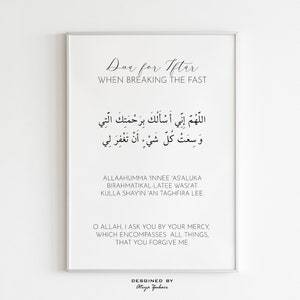 Dua for Iftar
WHEN BREAKING THE FAST
اللَّهُمَّ إِنِّي أَسْأَلُكَ بِرَحْمَتِكَ الَّتِي
وَسِعَتْ كُلَّ شَيْءٍ أَنْ تَغْفِرَ لِي
ALLAAHUMMA 'INNEE 'AS'ALUKA
BIRAHMATIKAL-LATEE WASI'AT
KULLA SHAY'IN 'AN TAGHFIRA LEE.
O ALLAH, I ASK YOU BY YOUR MERCY,
WHICH ENCOMPASSES ALL THINGS,
THAT YOU FORGIVE ME.
DESGINED BY